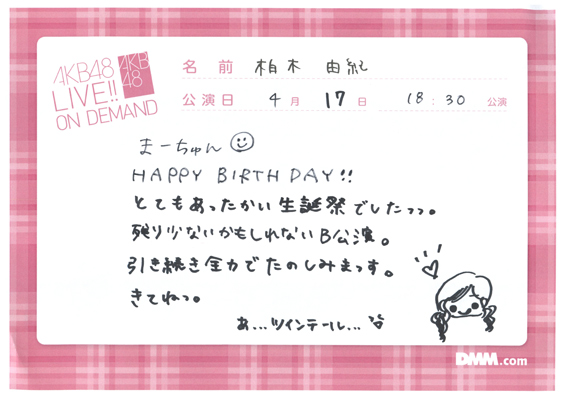 AKB48
LIVE!!
ON DEMAND
AKB
48
名前 柏木 由紀
公演日 4月 17日 18:30 公演
まーちゅん
HAPPY BIRTHDAY!!
とてもあったかい生誕祭でしたっっ。
残り少ないかもしれないB公演。
引き続き全力でたのしみまっす。
きてねっ。
あ...ツインテール...
DMM.com